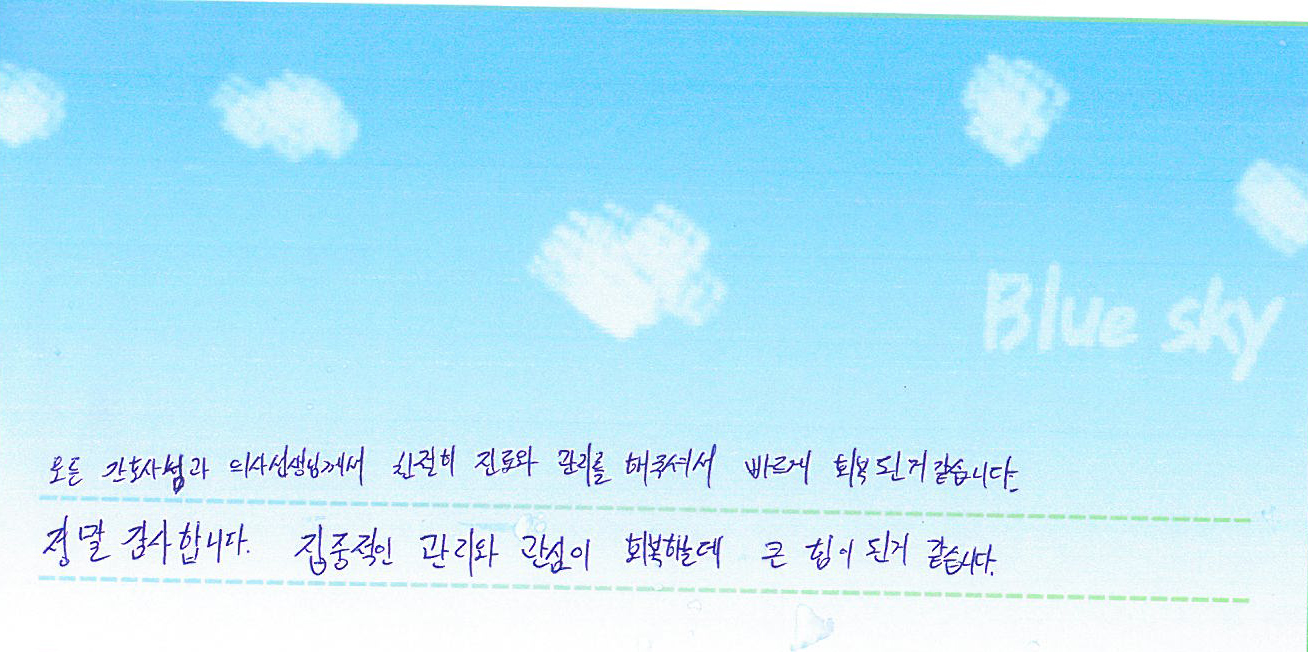 Blue sky
모든 간호사님과 의사선생님께서 친절히 진료와 관리를 해주셔서 바르게 회복 된거 같습니다.
정말 감사합니다. 집중적인 관리와 관심이 회복하는데 큰 힘이 된거 같습니다.